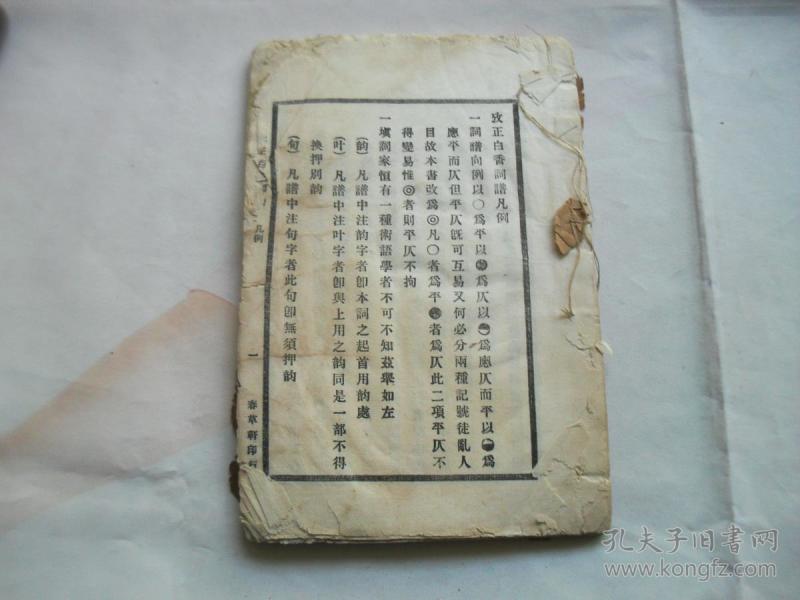 攷正白香詞譜凡例
一詞譜向例以○爲平以●爲仄以◓爲應仄而平以◒爲
應平而仄但平仄旣可互易又何必分兩種記號徒亂人
目故本書改爲◎凡○者爲平●者爲仄此二項平仄不
得變易惟◎者則平仄不拘
一塡詞家恒有一種術語學者不可不知茲舉如左
(韵)凡譜中注韵字者卽本詞之起首用韵處
(叶)凡譜中注叶字者卽與上用之韵同是一部不得
換押別韵
(句)凡譜中注句字者此句卽無須押韵
凡例
一
春草軒印
孔夫子旧书网
www.kongfz.com